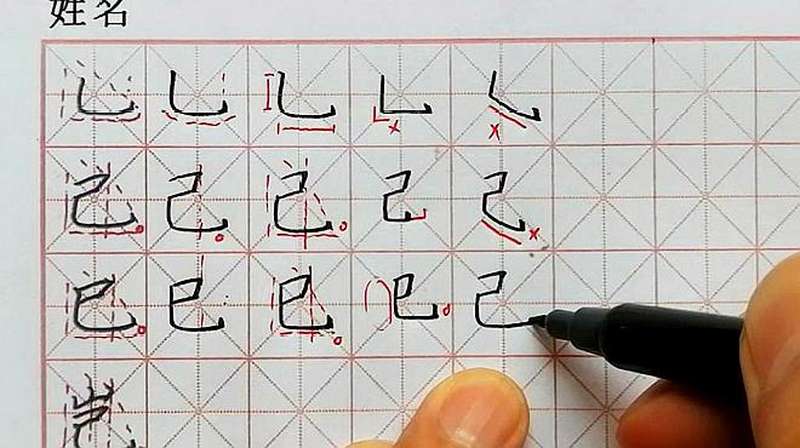 姓名
乚 乚 乚 乚 乚
己 己 己 己 己
巳 巳 巳 巳 己
岂